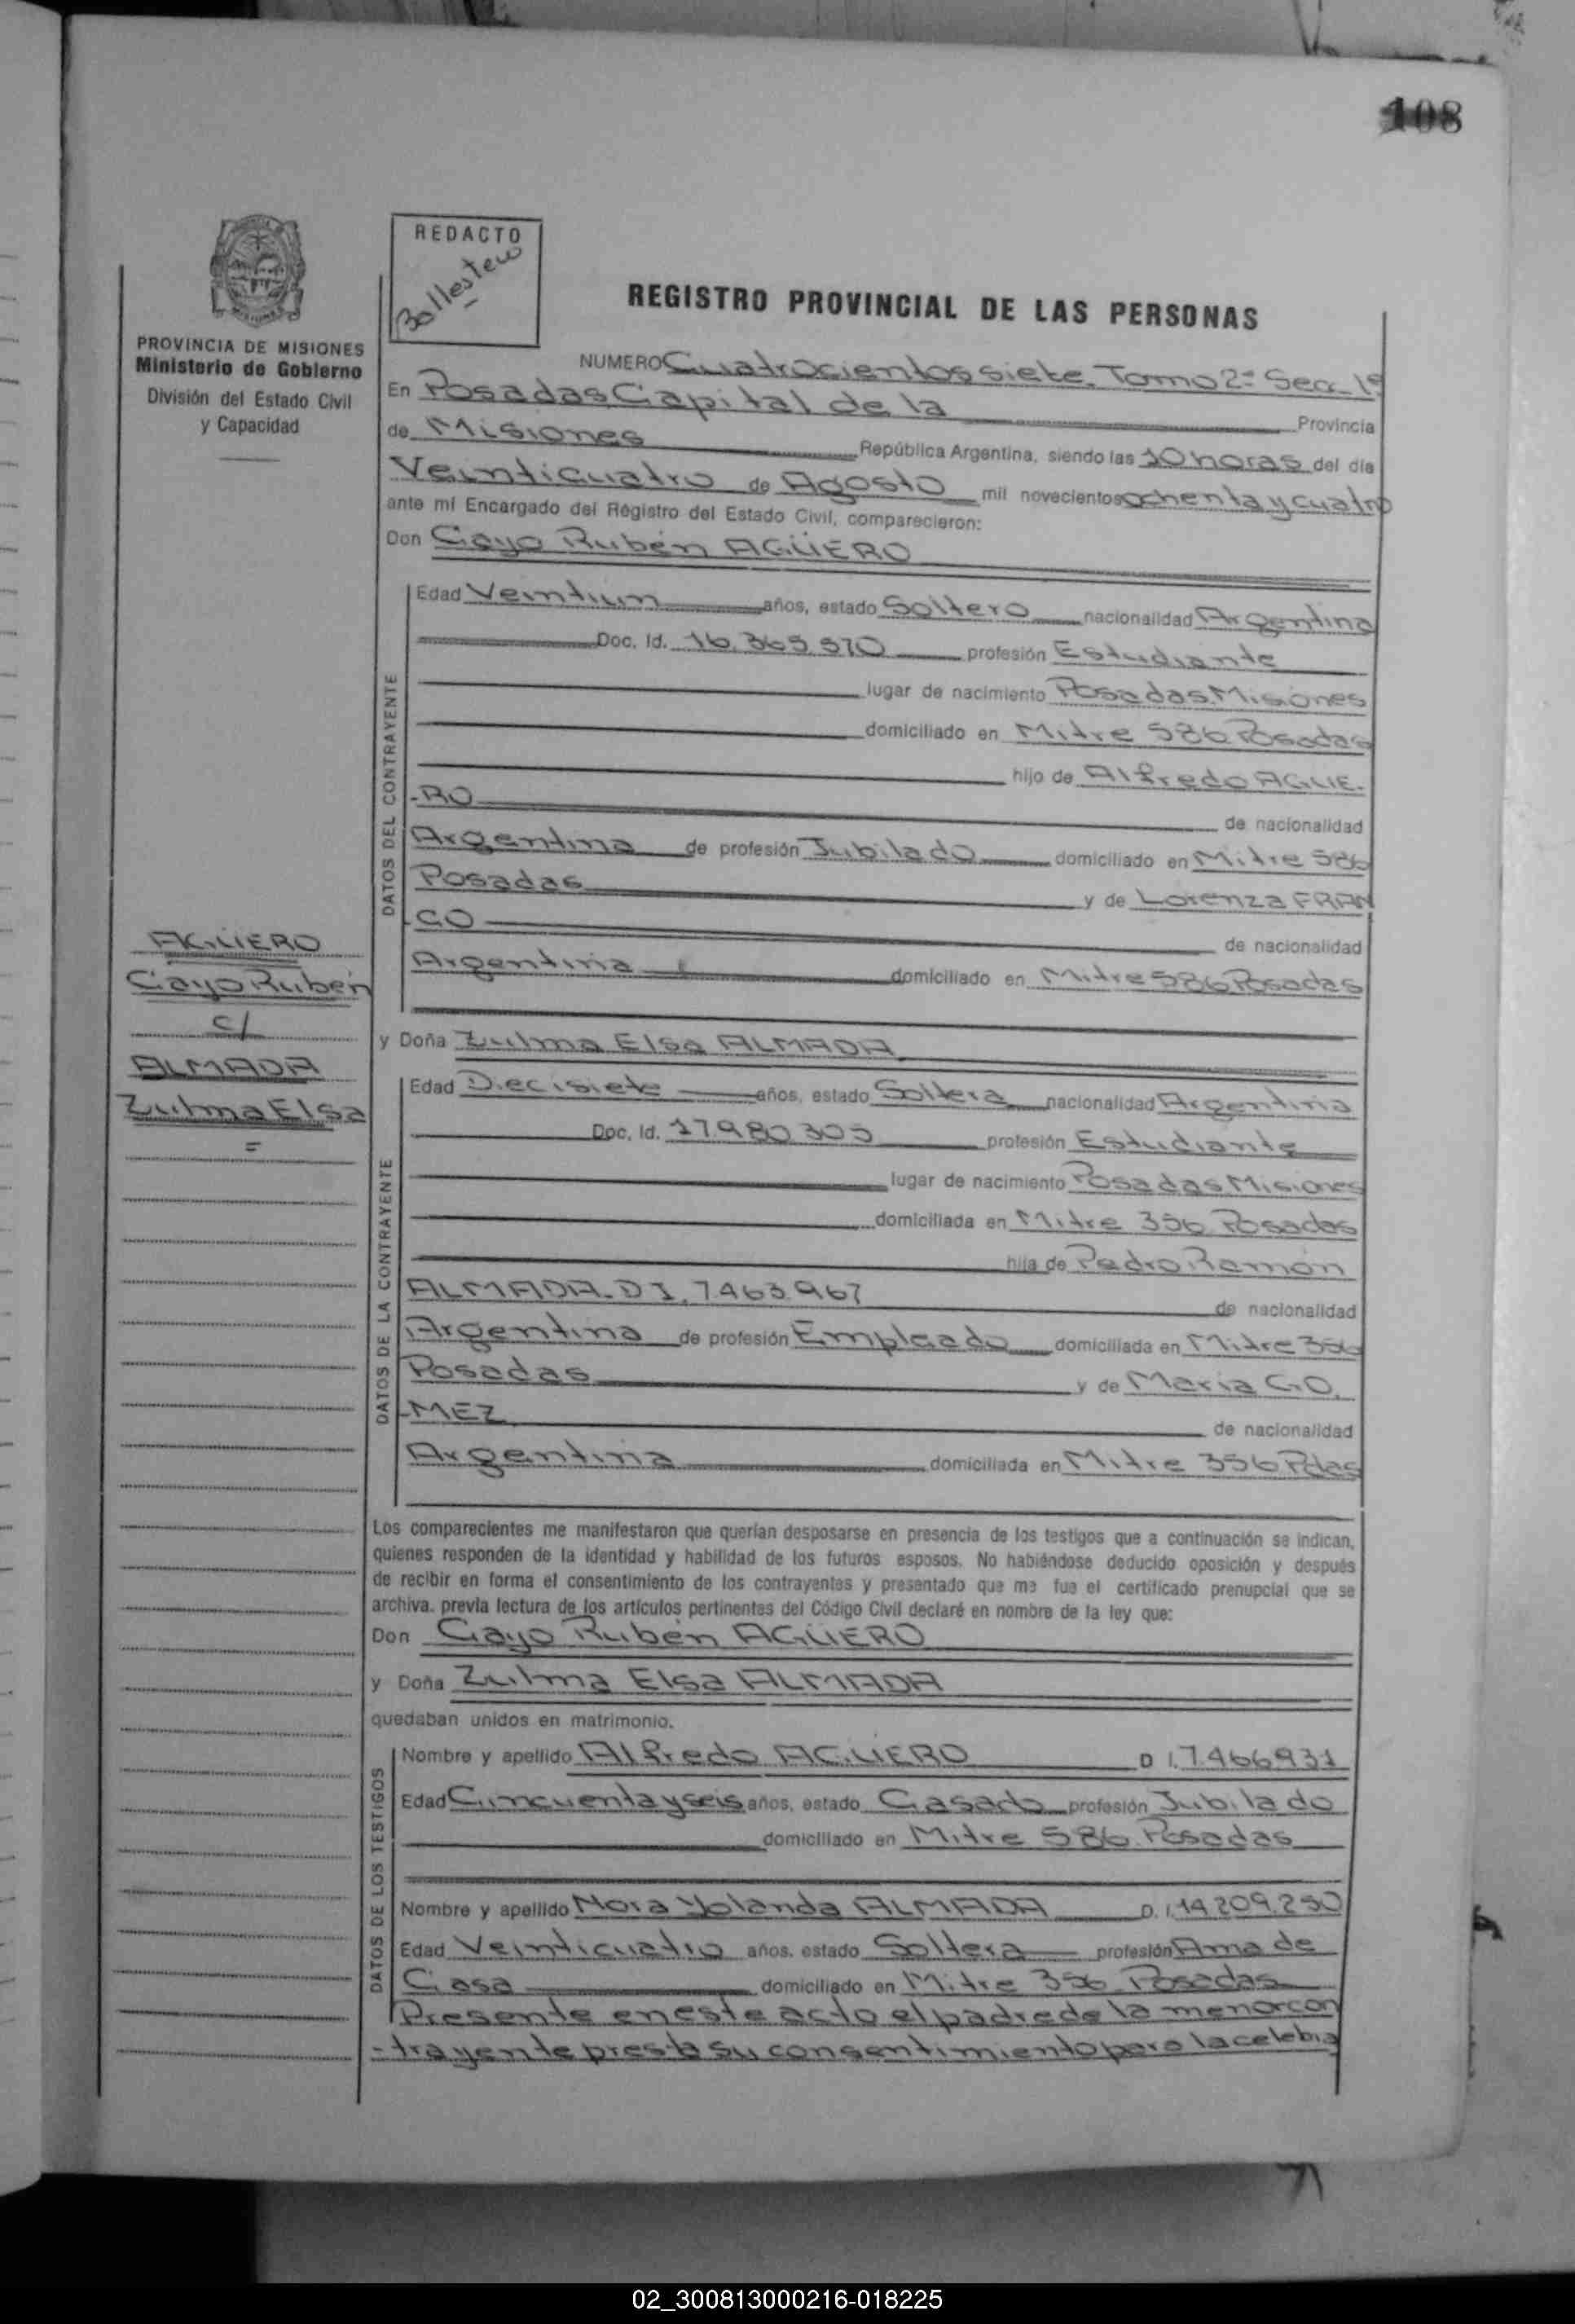 108
REDACTO
Ballestew
REGISTRO PROVINCIAL DE LAS PERSONAS
PROVINCIA DE MISIONES
Ministerio de Gobierno
División del Estado Civil
y Capacidad
NUMERO Cuatrocientos siete. Tomo 2º Sec. 1ª
En Posadas Capital de la Provincia
de Misiones República Argentina, siendo las 10 horas del día
Veinticuatro de Agosto mil novecientos ochenta y cuatro
ante mí Encargado del Registro del Estado Civil, comparecieron:
Don Cayo Rubén AGÜERO
DATOS DEL CONTRAYENTE
Edad Veintiun años, estado Soltero nacionalidad Argentina
Doc. Id. 16.365.570 profesión Estudiante
lugar de nacimiento Posadas Misiones
domiciliado en Mitre 586 Posadas
hijo de Alfredo AGUE-
-RO de nacionalidad
Argentina de profesión Jubilado domiciliado en Mitre 586
Posadas y de Lorenza FRAN
-CO de nacionalidad
Argentina domiciliado en Mitre 586 Posadas
AGÜERO
Cayo Rubén
c/
ALMADA
Zulma Elsa
=
y Doña Zulma Elsa ALMADA
DATOS DE LA CONTRAYENTE
Edad Diecisiete años, estado Soltera nacionalidad Argentina
Doc. Id. 17.980.305 profesión Estudiante
lugar de nacimiento Posadas Misiones
domiciliada en Mitre 356 Posadas
hija de Pedro Ramón
ALMADA. D I. 7.463.967 de nacionalidad
Argentina de profesión Empleado domiciliada en Mitre 356
Posadas y de María GO.
-MEZ de nacionalidad
Argentina domiciliada en Mitre 356 Pdas
Los comparecientes me manifestaron que querían desposarse en presencia de los testigos que a continuación se indican,
quienes responden de la identidad y habilidad de los futuros esposos. No habiéndose deducido oposición y después
de recibir en forma el consentimiento de los contrayentes y presentado que me fue el certificado prenupcial que se
archiva. previa lectura de los artículos pertinentes del Código Civil declaré en nombre de la ley que:
Don Cayo Rubén AGÜERO
y Doña Zulma Elsa ALMADA
quedaban unidos en matrimonio.
DATOS DE LOS TESTIGOS
Nombre y apellido Alfredo AGÜERO D I. 7.466931
Edad Cincuenta y seis años, estado Casado profesión Jubilado
domiciliado en Mitre 586 Posadas
Nombre y apellido Nora Yolanda ALMADA D. I. 14.209.250
Edad Veinticuatro años. estado Soltera profesión Ama de
Casa domiciliado en Mitre 356 Posadas
Presente en este acto el padre de la menor con
-trayente presta su consentimiento para la celebra
02_300813000216-018225